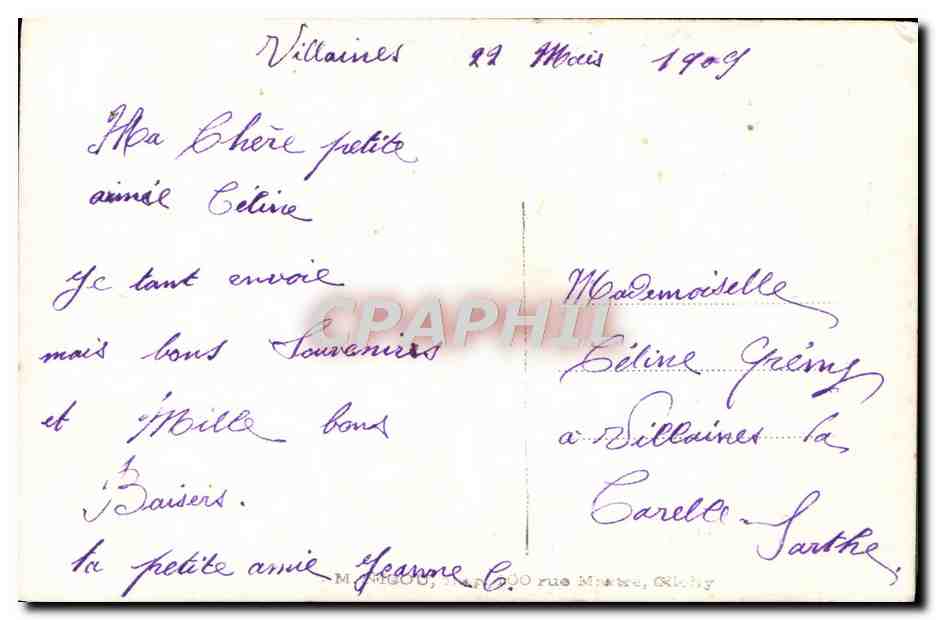 Villaines 22 Mais 1909
Ma Chère petite
aimée Céline
Je tant envoie
mais bons Souvenires
et Mille bons
Baisers.
ta petite amie Jeanne C.
Mademoiselle
Céline Grémy
à Villaines la
Carelle
Sarthe.
CPAPHIL
M. NIGOU, 100 rue Martre, Clichy